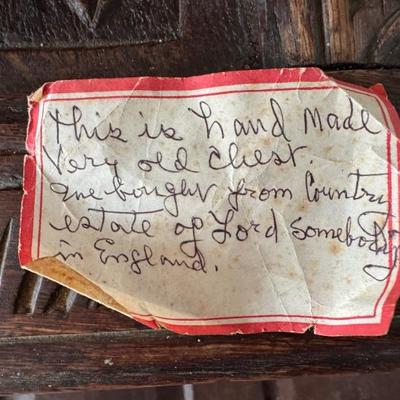 This is hand Made
Very old chest.
one bought from Country
estate of Lord Somebody
in England.